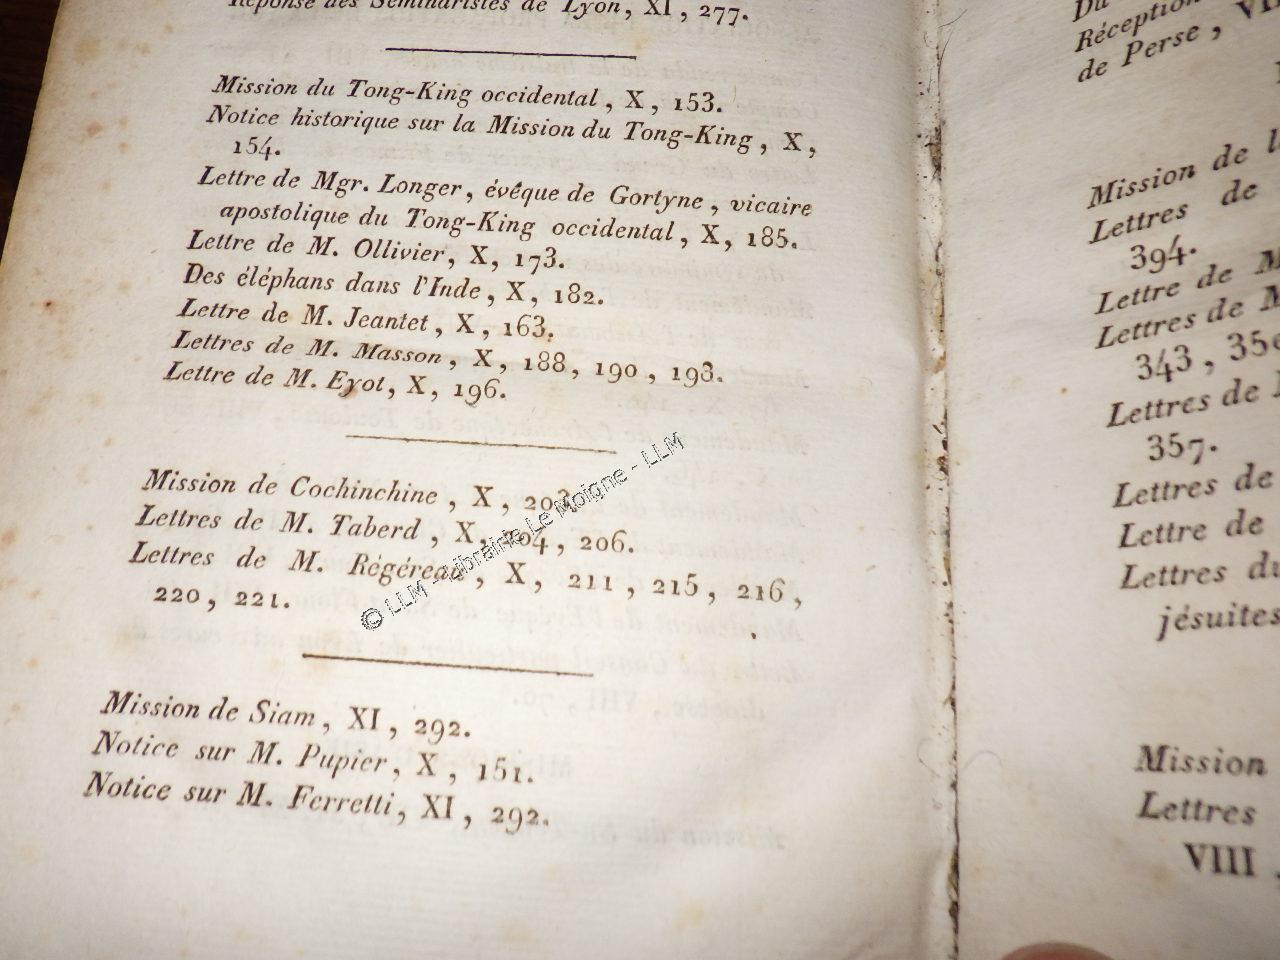 Réponse des Séminaristes de Lyon, XI, 277.
Mission du Tong-King occidental, X, 153.
Notice historique sur la Mission du Tong-King, X,
154.
Lettre de Mgr. Longer, évêque de Gortyne, vicaire
apostolique du Tong-King occidental, X, 185.
Lettre de M. Ollivier, X, 173.
Des éléphans dans l'Inde, X, 182.
Lettre de M. Jeantet, X, 163.
Lettres de M. Masson, X, 188, 190, 193.
Lettre de M. Eyot, X, 196.
Mission de Cochinchine, X, 203.
Lettres de M. Taberd, X, 204, 206.
Lettres de M. Régéreau, X, 211, 215, 216,
220, 221.
© LLM - Librairie Le Moigne - LLM
Mission de Siam, XI, 292.
Notice sur M. Pupier, X, 151.
Notice sur M. Ferretti, XI, 292.
Du
Réception
de Perse,
Mission de
Lettres de
394.
Lettre de
Lettres de
343,
Lettres de
357.
Lettres de
Lettre de
Lettres du
jésuites
Mission
Lettres
VIII